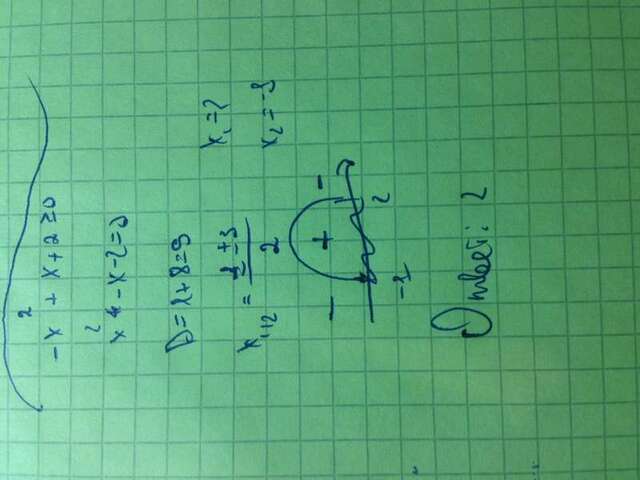 -x² + x + 2 ≥ 0
x² - x - 2 = 0
D = 1 + 8 = 9
x₁,₂ = (1 ± 3) / 2
x₁ = 2
x₂ = -1
- + -
-1 2
Ответ: 2